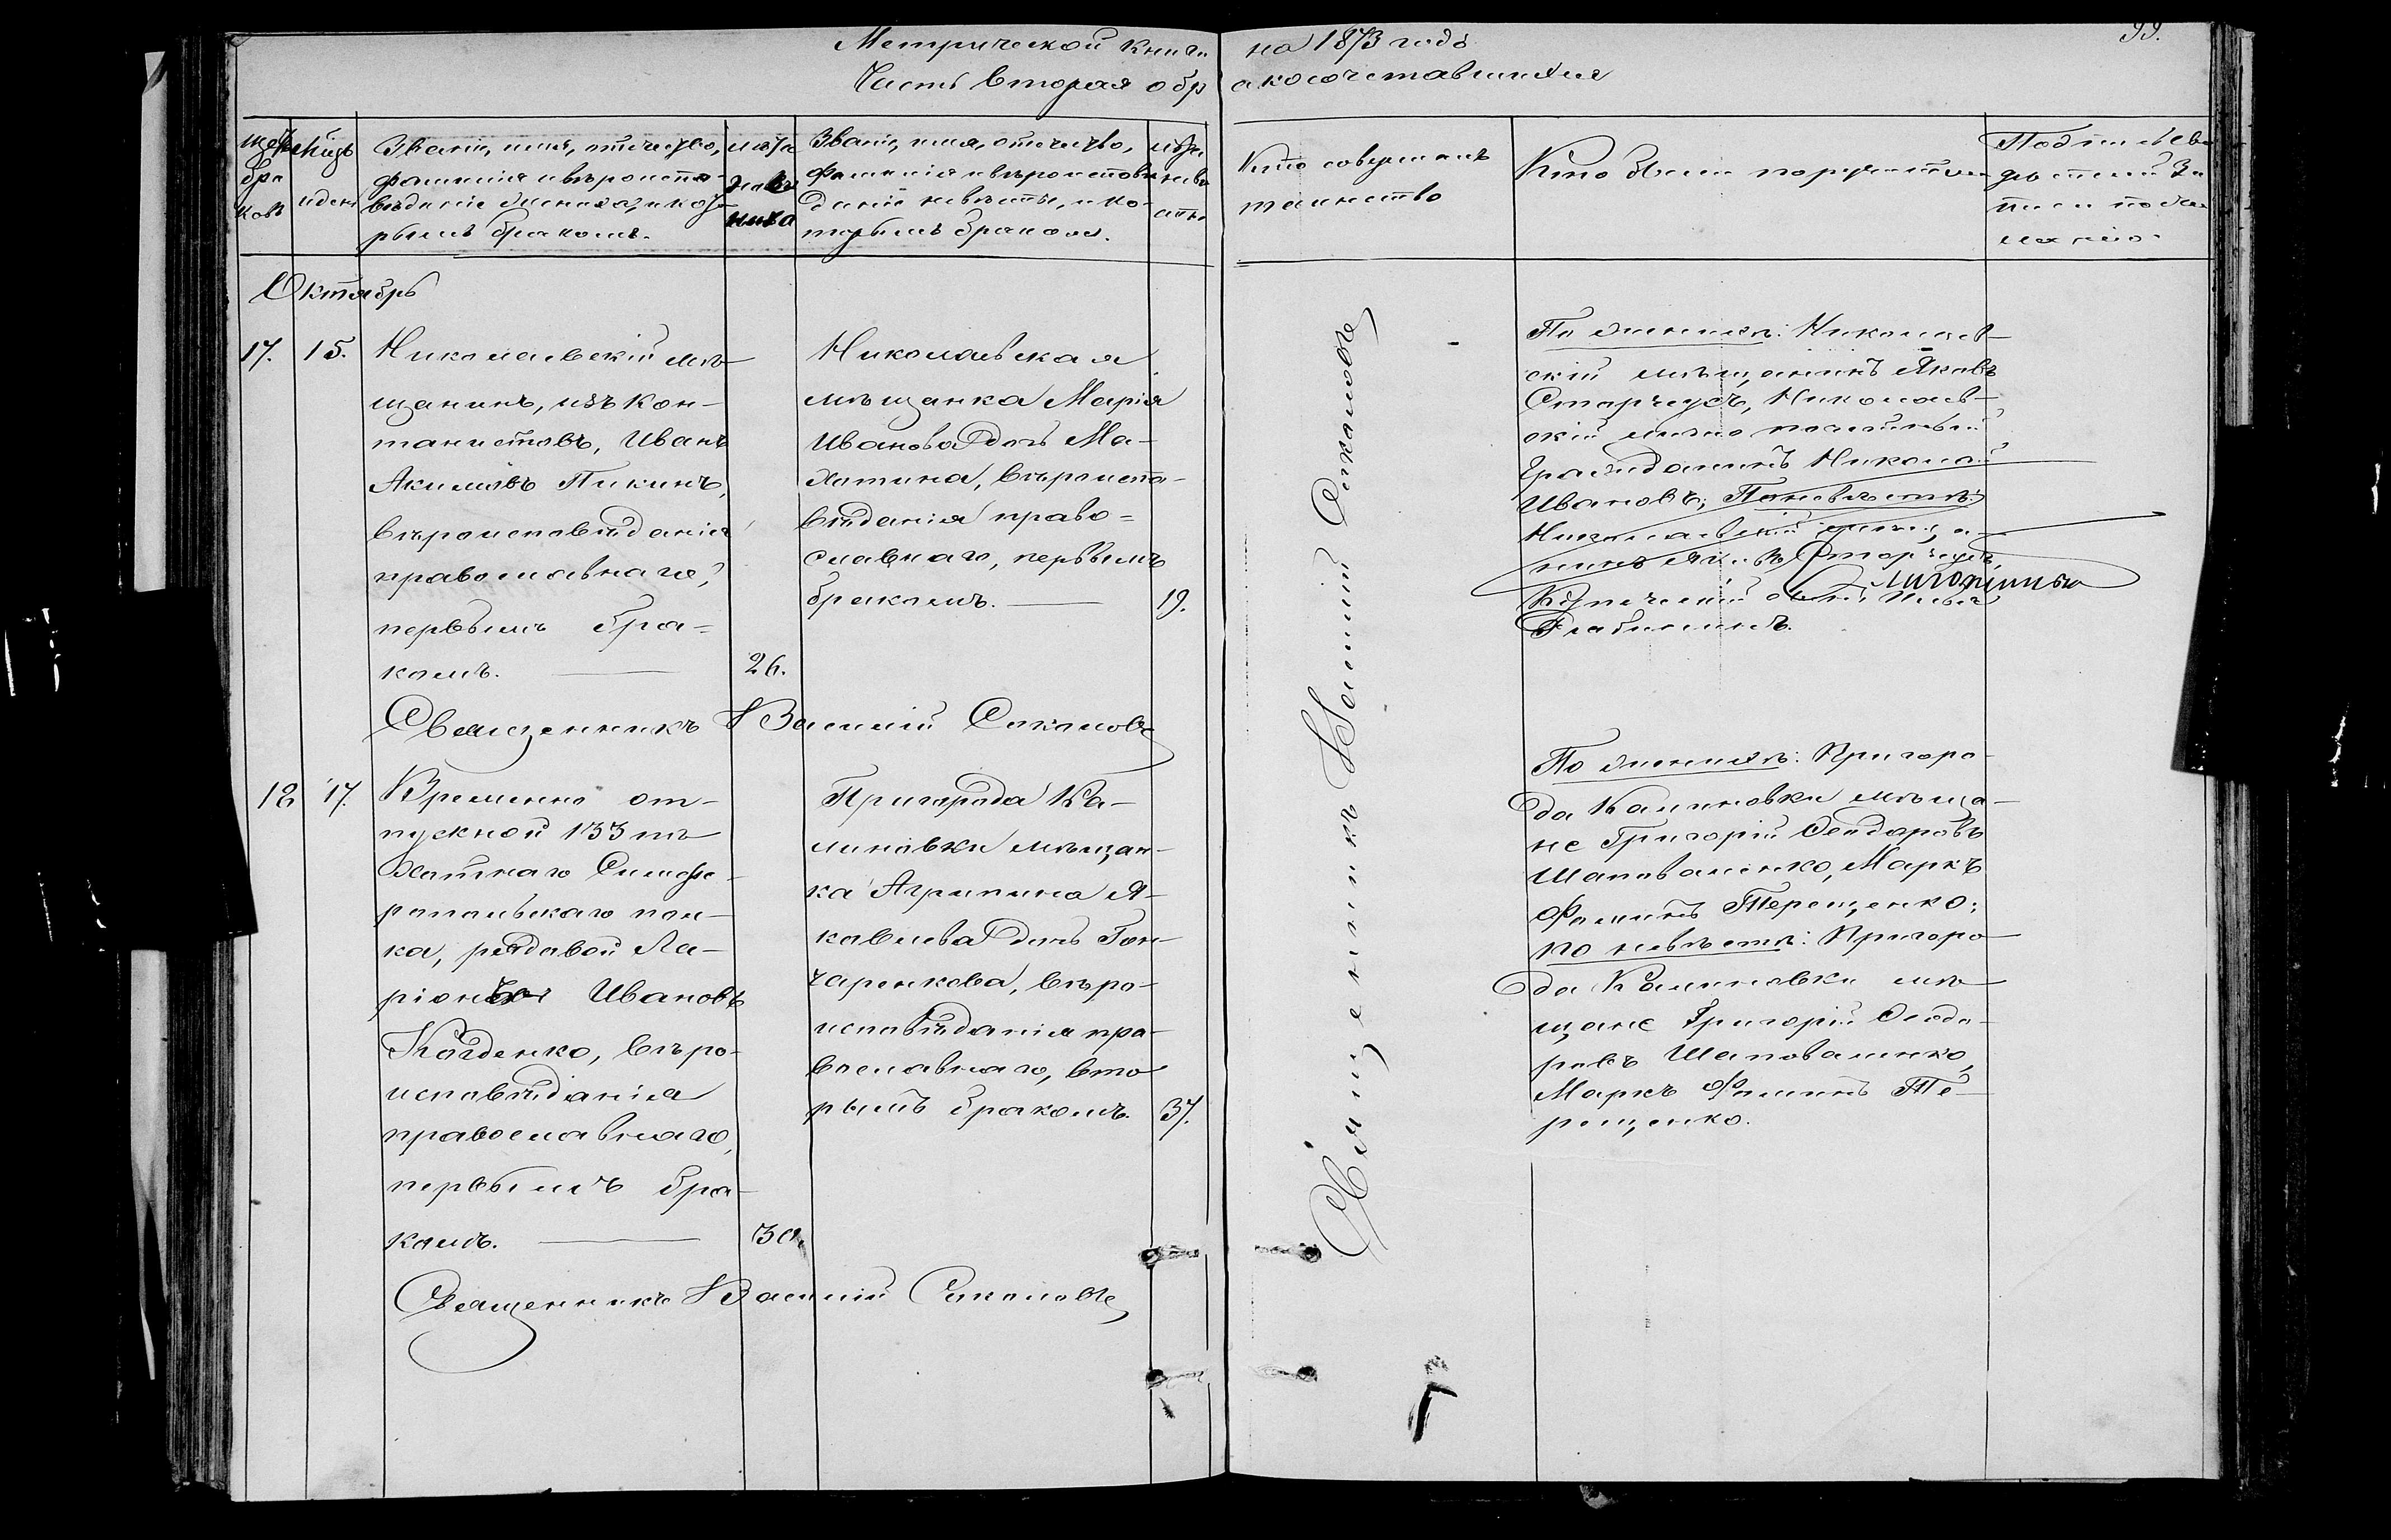 Метрической книги на 1873 годъ
99.
Часть вторая о бракосочетавшихся
Званіе, имя, отечество,
фамилія и вѣроиспо-
вѣданіе жениха, и кото-
рымъ бракомъ.
Званіе, имя, отечество,
фамилія и вѣроисповѣ
даніе невѣсты, и ко-
торымъ бракомъ.
Кто совершалъ
таинство
Кто были поручители
Октябрь
17.
15.
Николаевскій мѣ-
щанинъ, изъ кон-
танистовъ, Иванъ
Акимовъ Пикинъ,
вѣроисповѣданія
православнаго,
первымъ бра-
комъ.
26.
Николаевская
мѣщанка Марія
Иванова дочь Ма-
хотина, вѣроиспо-
вѣданія право-
славнаго, первымъ
бракомъ.
19.
Священникъ Василій Сокаловъ
Священникъ Василій Сокаловъ
По женихѣ: Николаев-
скій мѣщанинъ Яковъ
Старчусъ, Николаев-
скій лично почетный
гражданинъ Николай
Ивановъ; По невѣстѣ:
Николаевскій
Яковъ Старчусъ,
Купеческій
12
17.
Временно от-
пускной 133 го
пѣхотнаго Симфе-
ропольскаго пол-
ка, рядовой Ла-
ріонъ Ивановъ
Кагденко, вѣро-
исповѣданія
православнаго,
первымъ бра-
комъ.
30.
Пригорода Ка-
линовки мѣщан-
ка Агрипина Я-
ковлева дочь Гон-
чаренкова, вѣро-
исповѣданія пра-
вославнаго, вто
рымъ бракомъ.
37.
По женихѣ: Пригоро-
да Калиновки мѣща-
не Григорій Феодоровъ
Шаповаленко, Маркъ
Фоминъ Терещенко;
по невѣстѣ: Пригоро-
да Калиновки мѣ-
щане Григорій Феодо-
ровъ Шаповаленко,
Маркъ Фоминъ Те-
рещенко.
Священникъ Василій Сокаловъ